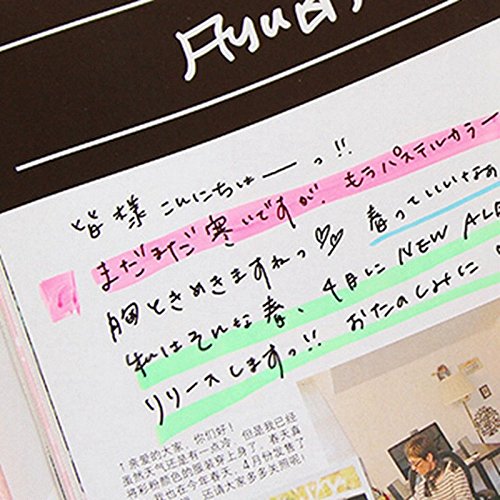 皆様 こんにちはーっ!!
まだまだ寒いですが、もうパステルカラー
胸ときめきますねっ♡♡ 春っていいなぁ
私はそんな春、4月に NEW ALB
リリースしますっ!! おたのしみに
↑亲爱的大家，你们好！
虽然天气还是有一点冷，但是我已经
将彩粉颜色的服装穿上身了。春天真
我也在今年春天，4月份发售了
还请大家多多关照呢！